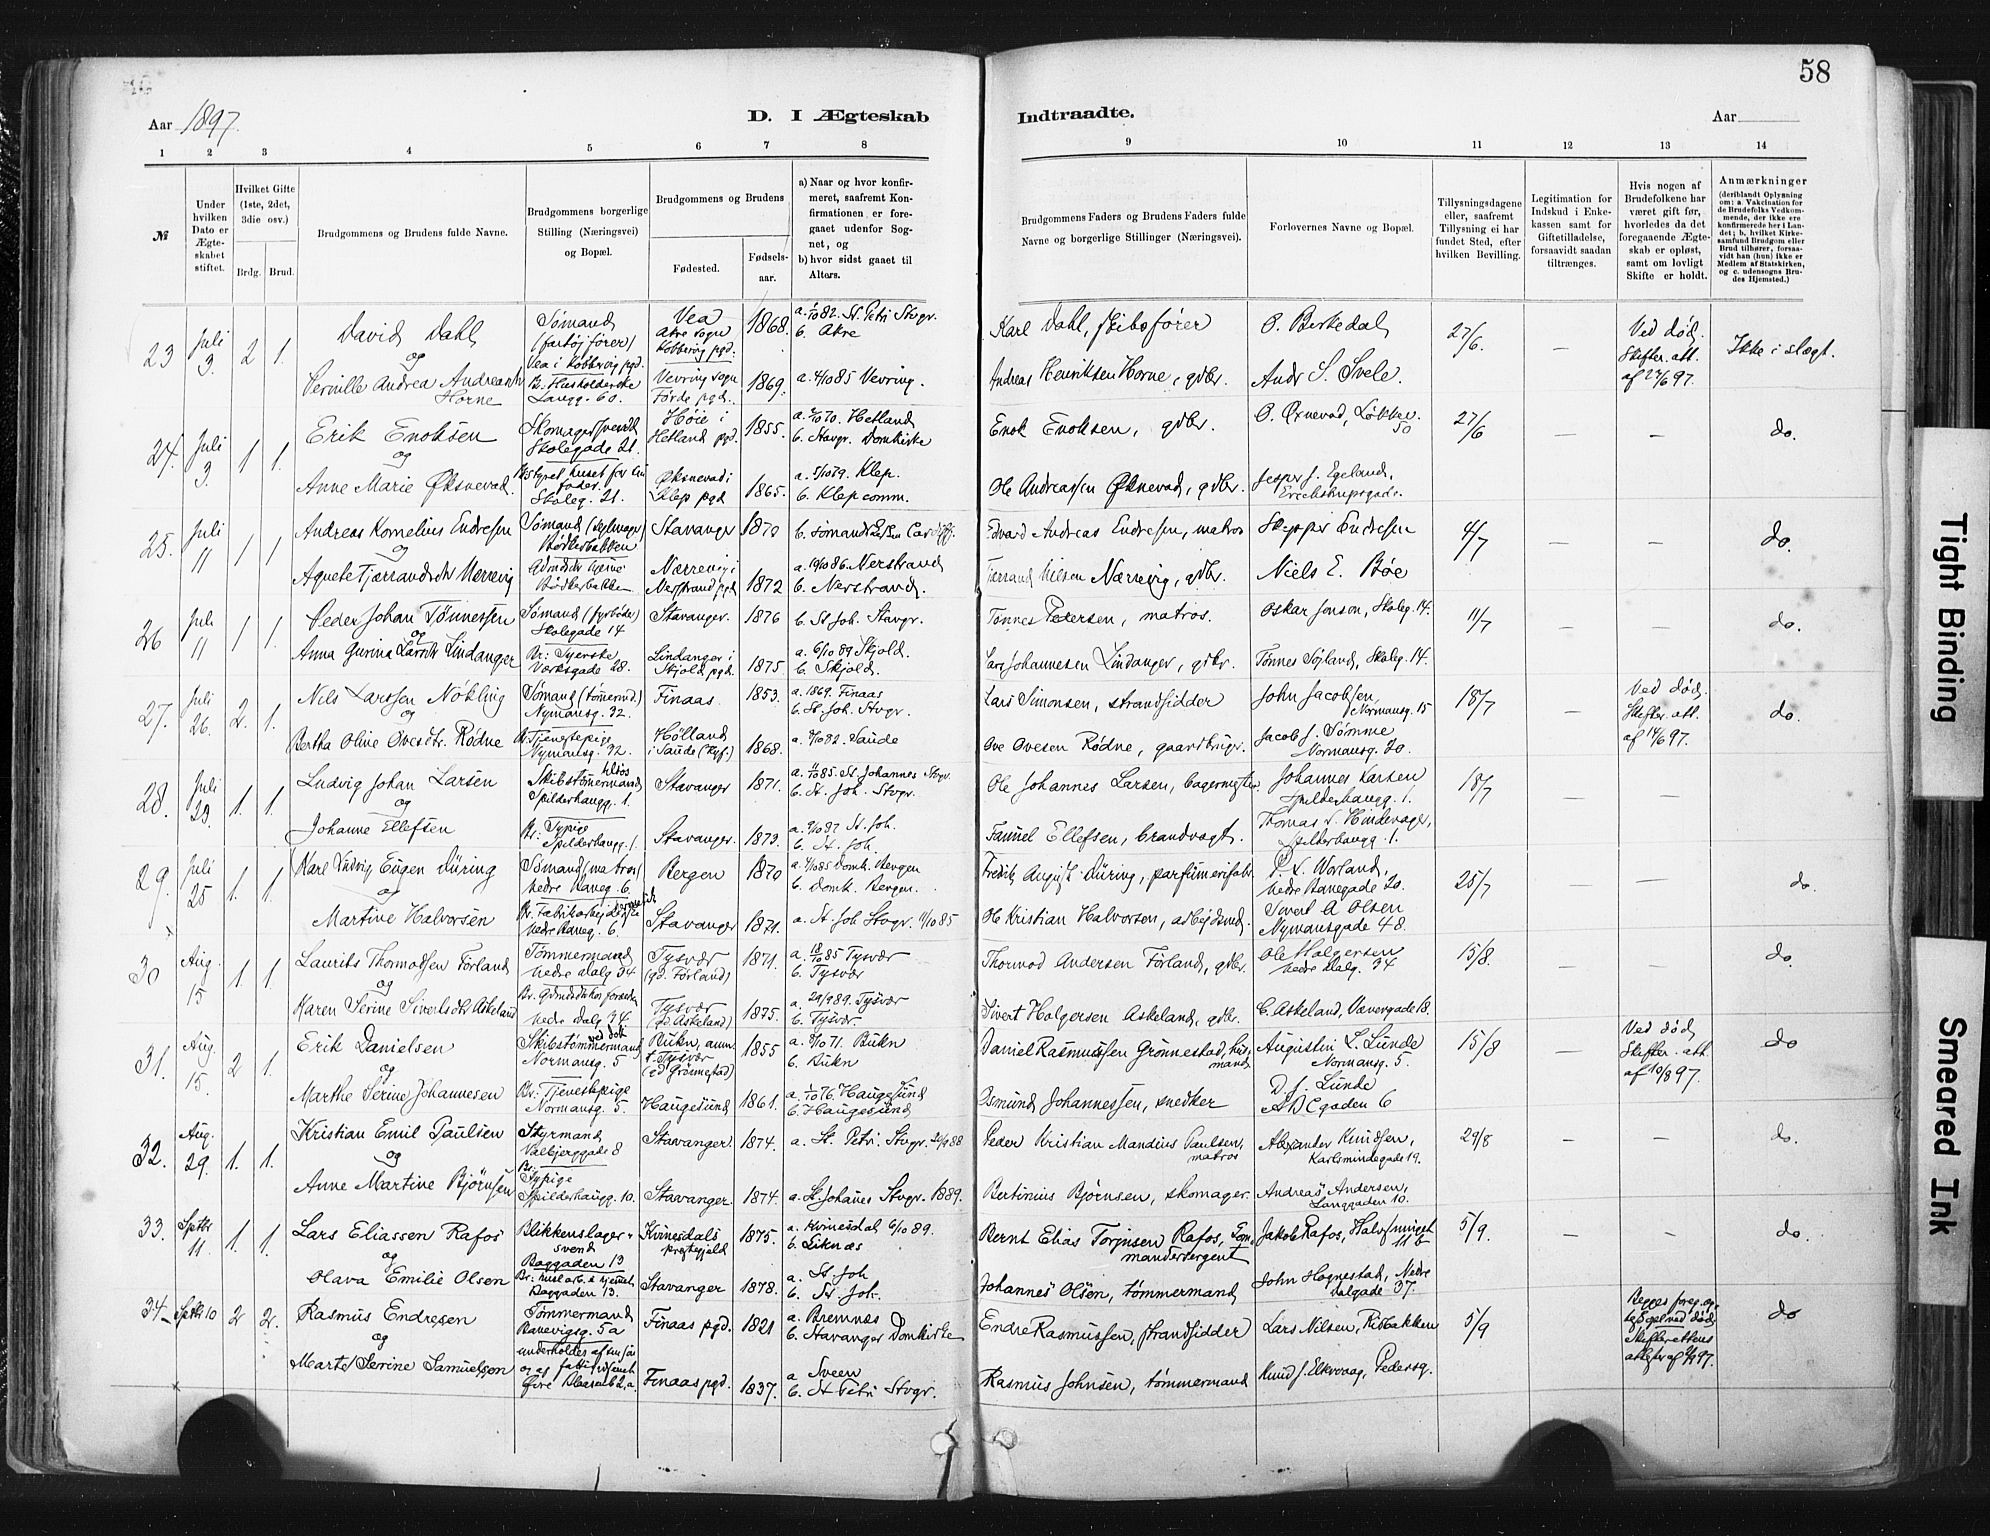 58
Aar 1897.
D. I Ægteskab Indtraadte.
Aar
1 2 3 4 5 6 7 8 9 10 11 12 13 14
№
Under hvilken Dato er Ægteskabet stiftet.
Hvilket Gifte (1ste, 2det, 3die osv.)
Brdg. Brud.
Brudgommens og Brudens fulde Navne.
Brudgommens borgerlige Stilling (Næringsvei) og Bopæl.
Brudgommens og Brudens
Fødested. Fødselsaar.
a) Naar og hvor konfirmeret, saafremt Konfirmationen er foregaaet udenfor Sognet, og
b) hvor sidst gaaet til Alters.
Brudgommens Faders og Brudens Faders fulde Navne og borgerlige Stillinger (Næringsvei).
Forlovernes Navne og Bopæl.
Tillysningsdagene eller, saafremt Tillysning ei har fundet Sted, efter hvilken Bevilling.
Legitimation for Indskud i Enkekassen samt for Giftetilladelse, forsaavidt saadan tiltrænges.
Hvis nogen af Brudefolkene har været gift før, hvorledes da det foregaaende Ægteskab er opløst, samt om lovligt Skifte er holdt.
Anmærkninger
(deriblandt Oplysning om: a. Vakcination for de Brudefolks Vedkommende, der ikke ere konfirmerede her i Landet; b. hvilket Kirkesamfund Brudgom eller Brud tilhører, forsaavidt han (hun) ikke er Medlem af Statskirken, og c. udensogns Brudes Hjemsted.)
23 Juli 3. 2 1. David Dahl Sømand (fartøjfører) Vea i Kobbervig pgd. Vea Akre sogn Kobbervig pgd. 1868. St. Petri Stvgr. b. Akre Karl Dahl, skibsfører O. Berkedal 27/6. — Ved død. Skifter. att. af 24/6 97. Ikke i slægt.
og
Andrea Andreasdtr Horne Br. Husholderske Langg. 60. Vevring sogn Førde pgd. 1869. a. 4/10 85 Vevring. Andreas Henriksen Horne, gdbr. Andr S. Svele.
24. Juli 3. 1 1. Erik Enoksen Skomagersvend Skolegade 21. Høie i Hetland pgd. 1855. Hetland b. Stavgr. Domkirke Enok Enoksen, gdbr. O. Øxnevad, Løkkev. 50 27/6 — — do.
og
Anne Marie Øksnevad. Skoleg. 21. Øksnevad i Klep pgd. 1865. a. 5/10 79. Klep. b. Klep comm. Ole Andreassen Øksnevad, gdbr. Jesper J. Egeland, Erichstrupsgade.
25. Juli 11 1 1. Andreas Kornelius Endresen Sømand Bødkerbakken Stavanger 1870 Edvard Andreas Endresen, matros Endresen 4/7 — — do.
og
Bødkerbakken Nærrevig i Nerstrand pgd 1872 a. 10/10 86. Nerstrand b. Nerstrand. Nilsen Nærrevig, gdbr. Niels E. Bøe
26 Juli 11 1 1. Peder Johan Tønnessen Sømand (fyrbøder) Skolegade 14 Stavanger. 1876 b. St Joh. Stavgr. Tønnes Pedersen, matros. Oskar Jonson, Skoleg. 14. 11/7 — — do.
og
Anna Gurina Larsdtr Lindanger Br: Syerske Værksgade 28. Lindanger i Skjold pgd. 1875. a. 6/10 89 Skjold. b. Skjold. Lars Johannesen Lindanger, gdbr. Tønnes Søyland, Skoleg. 14.
27. Juli 26. 2. 1. Nils Larssen Nøkling Sømand (tømrmd.) Nymansg. 32. Finaas 1853. a. 1869. Finaas b. St. Joh. Stvgr. Lars Simonsen, strandsidder John Jacobsen, Normansg. 15 18/7 — Ved død. Skifter. att. af 14/6 97. do.
og
Bertha Oline Ovesdtr. Rødne Br. Tjenestepige Nymansg. 32. Hølland i Saude (Ryf.) 1868. Saude Ove Ovesen Rødne, gaardbruger. Jacob J. Sømme Normansg. 20.
28. Juli 23. 1. 1. Ludvig Johan Larsen Skibstømermand Spilderhaugg. 1. Stavanger 1871. St. Johannes Stvgr. b. St. Joh. Stvgr. Ole Johannes Larsen, bagermester. Johannes Larsen Spilderhaugg. 1. 18/7 — — do.
og
Johanne Ellefsen Br: Sypige Spilderhaugg. 1. Stavanger. 1873. St. Joh. b. St. Joh. Ellefsen, brandvagt. Thomas Spilderhaugg. 1.
29. Juli 25 1. 1. Karl Ludvig Eugen Düring Sømand (matros) nedre Baneg. 6. Bergen 1870 Domk. Bergen b. Domk. Bergen. Fredrik August Düring, parfumerifabr. P. L. Worland, nedre Banegade 20. 25/7 — — do.
og
Martine Halvorsen nedre Baneg. 6 Stavanger 1871. a. St Joh Stvgr. 11/10 85 Ole Kristian Halvorsen, arbejdsmd. Sivert A Olsen Nymansgade 48.
30 Aug. 15 1 1. Laurits Thormodsen Førland Tømmermand nedre Dalg. 34 Tysvær (gd. Førland) 1871. a. 18/10 85 Tysvær b. Tysvær Thormod Andersen Førland, gdbr. Ole Holgersen nedre Dalg. 34 15/8. — — do.
og
Karen Serine Sivertsdtr Askeland nedre Dalg. 34. Tysvær (gd. Askeland) 1875. a. 29/9 89. Tysvær b. Tysvær. Sivert Holgersen Askeland, gdbr. C. Askeland, Vævergade 18.
31. Aug. 15. 2 1. Erik Danielsen Skibstømmermand Normansg. 5 Bukn, ann. t. Tysvær (gd Grønnestad) 1855 Bukn b. Bukn Daniel Rasmussen Grønnestad, husmand. Augustin L. Lunde Normansg. 5. 15/8 — Ved død, Skifter. att. af 10/8 97. do
og
Marthe Serine Johannesen Br: Tjenestepige Normansg. 5. Haugesund 1861. a. 1/10 76. Haugesund b. Haugesund Osmund Johannessen, snedker D. J. Lunde ABCgaden 6
32. Aug. 29. 1. 1. Kristian Emil Paulsen Styrmand Valbjerggade 8 Stavanger. 1874. a. St. Petri Stvgr. Peder Kristian Mandius Paulsen, matros Alexander Knudsen, Karlsmindegade 19. 29/8 — — do.
og
Anne Martine Bjørnsen Br: Sypige Spilderhaugg. 10. Stavanger. 1874. a. St. Johannes Stvgr. 1889. Bertinius Bjørnsen, skomager. Andreas Andersen, Langgaden 10.
33. Septbr 11. 1. 1. Lars Eliassen Rafos Blikkenslagersvend Baggaden 13 Kvinesdals prestegjeld 1875. a. Kvinesdal 6/10 89. b. Liknæs Bernt Elias Torjusen Rafos, kommandersergent Jakob Rafos, 5/9. — — do.
og
Olava Emilie Olsen Baggaden 13. Stavanger 1878. a. St Joh b. St Joh. Johannes Olsen, tømmermand John Hognestad, Nedre Dalgade 37.
34 Septbr 10 2 2. Rasmus Endresen Tømmermand Banevigsg. 5a Finaas pgd. 1821 a. Bremnæs b. Stavanger Domkirke Endre Rasmussen, strandsidder Lars Nilsen, Ridbakken 5/9 — Begges foreg. ved død Skifterettens do
og
Marte Serine Samuelsen Finaas pgd. 1837. a Sveen b. St Petri Stvgr. Rasmus Johnsen, tømmermand Knud J. Elkevaag, Pedersg.
Tight Binding
Smeared Ink